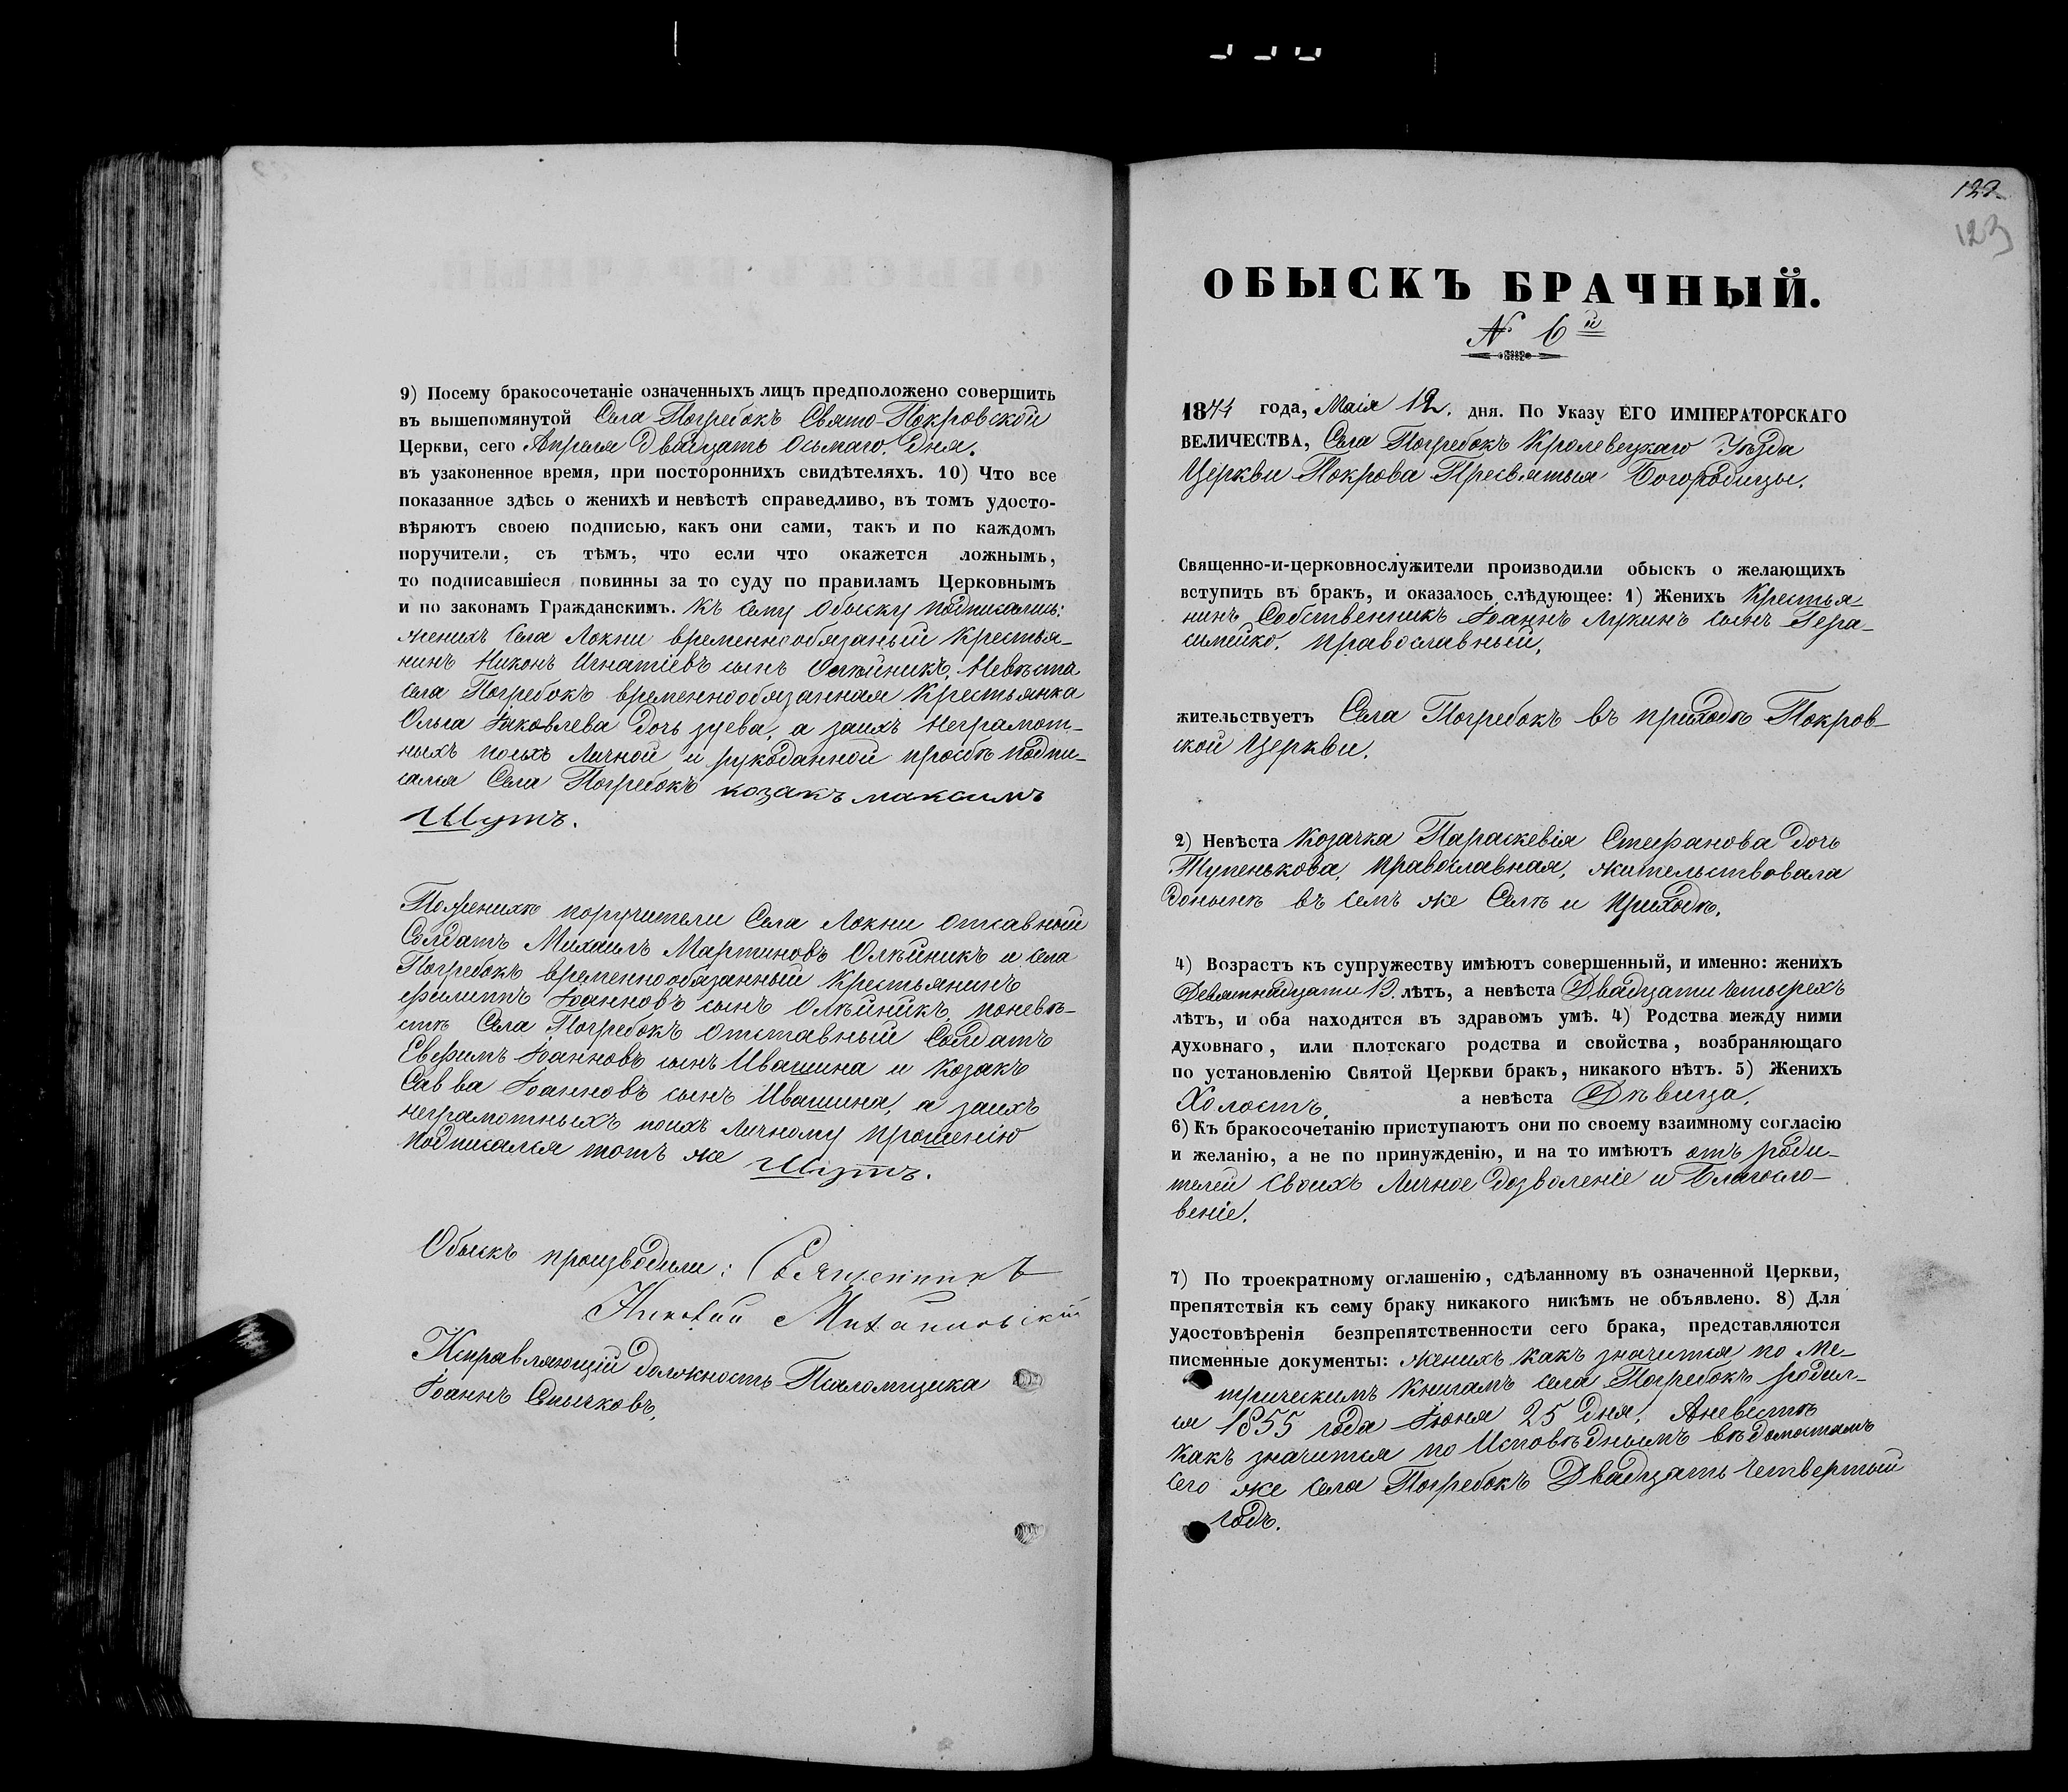 9) Посему бракосочетаніе означенныхъ лицъ предположено совершить
въ вышепомянутой Села Погребокъ Свято-Покровской
Церкви, сего Апреля Двадцать Осьмаго. Дня.
въ узаконенное время, при постороннихъ свидѣтеляхъ. 10) Что все
показанное здѣсь о женихѣ и невѣстѣ справедливо, въ томъ удосто-
вѣряютъ своею подписью, какъ они сами, такъ и по каждомъ
поручители, съ тѣмъ, что если что окажется ложнымъ,
то подписавшіеся повинны за то суду по правиламъ Церковнымъ
и по законамъ Гражданскимъ. Къ сему Обыску подписались:
женихъ Села Локни временнообязаный Крестья-
нинъ Никонъ Игнатіевъ сынъ Олѣйникъ, Невѣста
села Погребокъ временнообязанная Крестьянка
Ольга Іаковлева дочь Зуева, а заихъ неграмот-
ныхъ поихъ Личной и рукоданной прозбѣ подпи-
сался Села Погребокъ козакъ максимъ
Шутъ.
Поженихѣ поручители Села Локни отставный
Солдатъ Михаилъ Мартиновъ Олѣйникъ и села
Погребокъ временнообязанный Крестьянинъ
филиппъ Іоанновъ сынъ Олѣйникъ, поневѣ-
стѣ Села Погребокъ Отставный Солдатъ
Евфимъ Іоанновъ сынъ Ивашина и Козакъ
Савва Іоанновъ сынъ Ивашина, а заихъ
неграмотныхъ поихъ Личному прошенію
подписался тотъ же Шутъ.
Обыскъ производили: Священникъ
Николай Михайловскій
Исправляющій должность Псаломщика
Іоаннъ Смычковъ.
123
ОБЫСКЪ БРАЧНЫЙ.
№ 6й
1874 года, Маія 12. дня. По Указу ЕГО ИМПЕРАТОРСКАГО
ВЕЛИЧЕСТВА, Села Погребокъ Кролевецкаго Уѣзда
Церкви Покрова Пресвятыя Богородицы.
Священно-и-церковнослужители производили обыскъ о желающихъ
вступить въ бракъ, и оказалось слѣдующее: 1) Женихъ Крестья-
нинъ Собственникъ Іоаннъ Лукинъ сынъ Гера-
симейко. православный.
жительствуетъ Села Погребокъ въ приходѣ Покров-
ской Церкви.
2) Невѣста Козачка Параскевія Стефанова дочь
Тупенькова, православная, жительствовала
донынѣ въ семъ же Селѣ и приходѣ.
4) Возрастъ къ супружеству имѣютъ совершенный, и именно: женихъ
Девятнадцати 19. лѣтъ, а невѣста Двадцати четырехъ
лѣтъ, и оба находятся въ здравомъ умѣ. 4) Родства между ними
духовнаго, или плотскаго родства и свойства, возбраняющаго
по установленію Святой Церкви бракъ, никакого нѣтъ. 5) Женихъ
Холостъ, а невѣста Дѣвица.
6) Къ бракосочетанію приступаютъ они по своему взаимному согласію
и желанію, а не по принужденію, и на то имѣютъ отъ роди-
телей своихъ Личное дозволеніе и Благосло-
веніе.
7) По троекратному оглашенію, сдѣланному въ означенной Церкви,
препятствія къ сему браку никакого никѣмъ не объявлено. 8) Для
удостовѣренія безпрепятственности сего брака, представляются
писменные документы: женихъ какъ значится по Ме-
трическимъ Книгамъ села Погребокъ родил-
ся 1855 года Іюня 25 дня. Аневестѣ
какъ значится по Исповѣднымъ вѣдомостямъ
сего же села Погребокъ Двадцать четвертый
годъ.